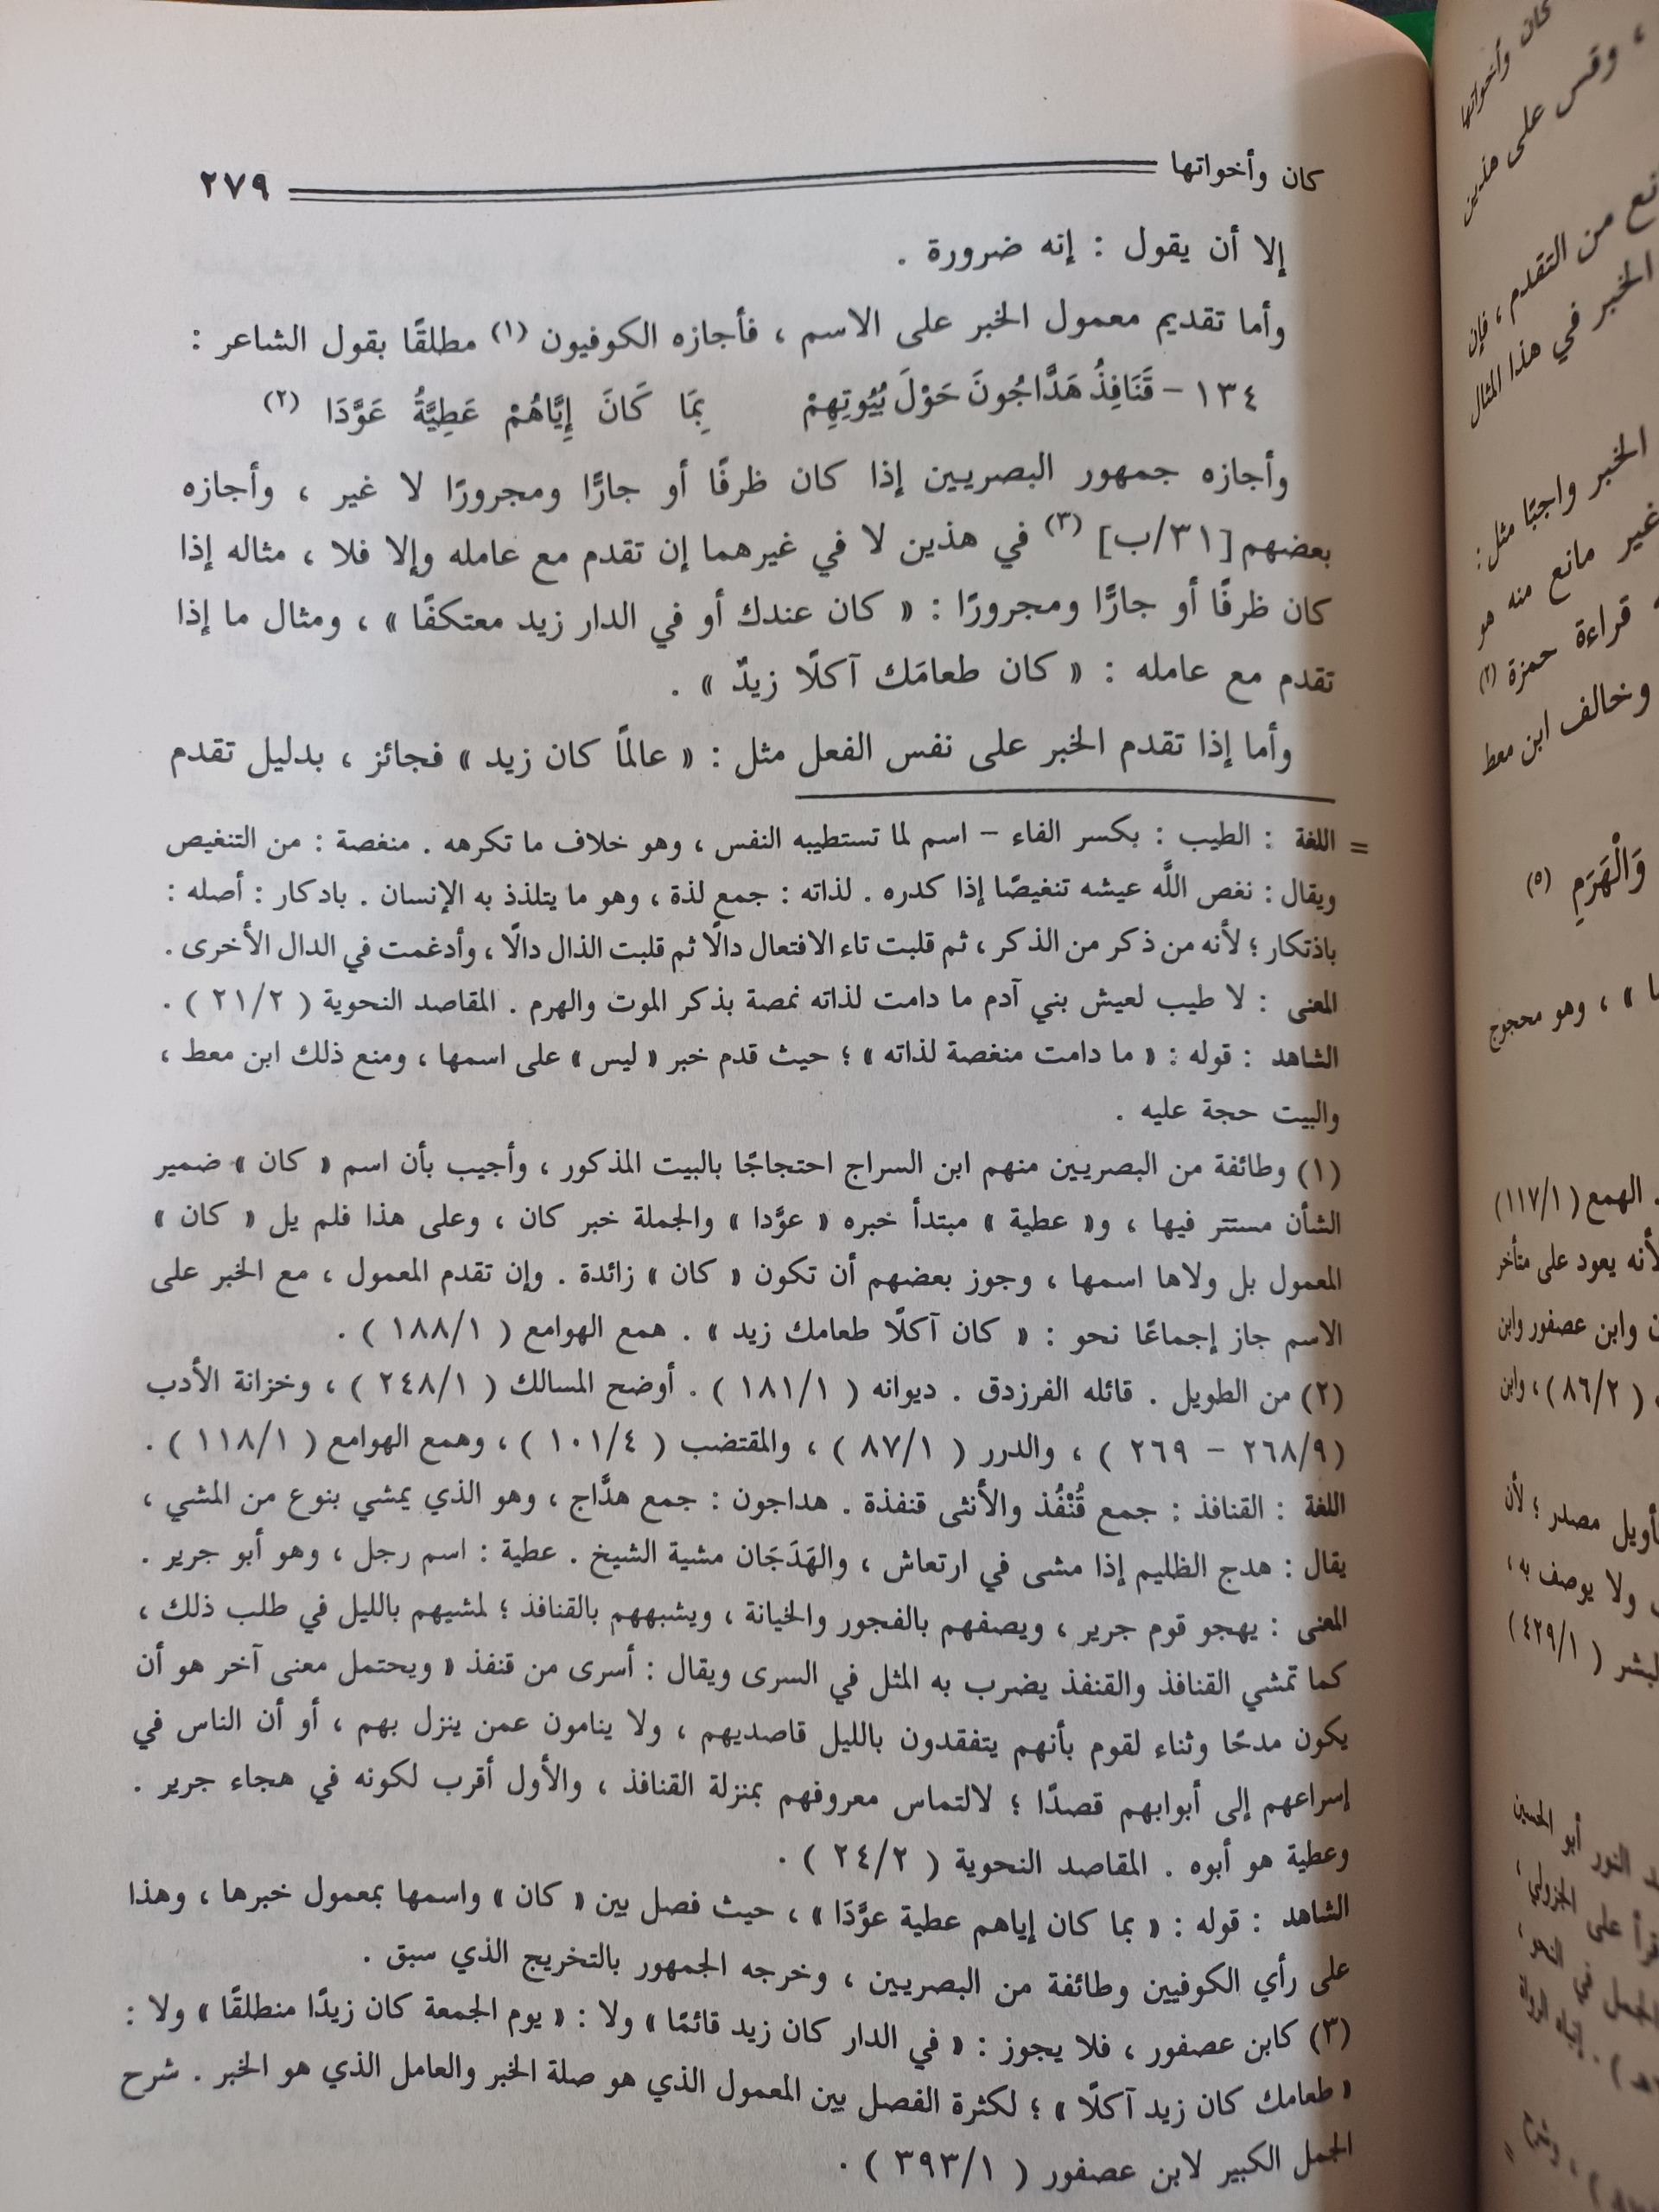 كان وأخواتها ٢٧٩
إلا أن يقول : إنه ضرورة .
وأما تقديم معمول الخبر على الاسم ، فأجازه الكوفيون (١) مطلقًا بقول الشاعر :
١٣٤ - قَنَافِذُ هَدَّاجُونَ حَوْلَ بُيُوتِهِمْ بِمَا كَانَ إِيَّاهُمْ عَطِيَّةُ عَوَّدَا (٢)
وأجازه جمهور البصريين إذا كان ظرفًا أو جارًّا ومجرورًا لا غير ، وأجازه
بعضهم [٣١/ب] (٣) في هذين لا في غيرهما إن تقدم مع عامله وإلا فلا ، مثاله إذا
كان ظرفًا أو جارًّا ومجرورًا : « كان عندك أو في الدار زيد معتكفًا » ، ومثال ما إذا
تقدم مع عامله : « كان طعامَك آكلًا زيدٌ » .
وأما إذا تقدم الخبر على نفس الفعل مثل : « عالمًا كان زيد » فجائز ، بدليل تقدم
= اللغة : الطيب : بكسر الفاء - اسم لما تستطيبه النفس ، وهو خلاف ما تكرهه . منغصة : من التنغيص
ويقال : نغص اللَّه عيشه تنغيصًا إذا كدره . لذاته : جمع لذة ، وهو ما يتلذذ به الإنسان . بادكار : أصله :
باذتكار ؛ لأنه من ذكر من الذكر ، ثم قلبت تاء الافتعال دالًا ثم قلبت الذال دالًا ، وأدغمت في الدال الأخرى .
المعنى : لا طيب لعيش بني آدم ما دامت لذاته نمصة بذكر الموت والهرم . المقاصد النحوية ( ٢١/٢ ) .
الشاهد : قوله : « ما دامت منغصة لذاته » ؛ حيث قدم خبر « ليس » على اسمها ، ومنع ذلك ابن معط ،
والبيت حجة عليه .
(١) وطائفة من البصريين منهم ابن السراج احتجاجًا بالبيت المذكور ، وأجيب بأن اسم « كان » ضمير
الشأن مستتر فيها ، و« عطية » مبتدأ خبره « عوَّدا » والجملة خبر كان ، وعلى هذا فلم يل « كان »
المعمول بل ولاها اسمها ، وجوز بعضهم أن تكون « كان » زائدة . وإن تقدم المعمول ، مع الخبر على
الاسم جاز إجماعًا نحو : « كان آكلًا طعامك زيد » . همع الهوامع ( ١٨٨/١ ) .
(٢) من الطويل . قائله الفرزدق . ديوانه ( ١٨١/١ ) . أوضح المسالك ( ٢٤٨/١ ) ، وخزانة الأدب
( ٢٦٨/٩ - ٢٦٩ ) ، والدرر ( ٨٧/١ ) ، والمقتضب ( ١٠١/٤ ) ، وهمع الهوامع ( ١١٨/١ ) .
اللغة : القنافذ : جمع قُنْفُذ والأنثى قنفذة . هداجون : جمع هدَّاج ، وهو الذي يمشي بنوع من المشي ،
يقال : هدج الظليم إذا مشى في ارتعاش ، والهَدَجَان مشية الشيخ . عطية : اسم رجل ، وهو أبو جرير .
المعنى : يهجو قوم جرير ، ويصفهم بالفجور والخيانة ، ويشبههم بالقنافذ ؛ لمشيهم بالليل في طلب ذلك ،
كما تمشي القنافذ والقنفذ يضرب به المثل في السرى ويقال : أسرى من قنفذ « ويحتمل معنى آخر هو أن
يكون مدحًا وثناء لقوم بأنهم يتفقدون بالليل قاصديهم ، ولا ينامون عمن ينزل بهم ، أو أن الناس في
إسراعهم إلى أبوابهم قصدًا ؛ لالتماس معروفهم بمنزلة القنافذ ، والأول أقرب لكونه في هجاء جرير .
وعطية هو أبوه . المقاصد النحوية ( ٢٤/٢ ) .
الشاهد : قوله : « بما كان إياهم عطية عوَّدَا » ، حيث فصل بين « كان » واسمها بمعمول خبرها ، وهذا
على رأي الكوفيين وطائفة من البصريين ، وخرجه الجمهور بالتخريج الذي سبق .
(٣) كابن عصفور ، فلا يجوز : « في الدار كان زيد قائمًا » ولا : « يوم الجمعة كان زيدًا منطلقًا » ولا :
« طعامك كان زيد آكلًا » ؛ لكثرة الفصل بين المعمول الذي هو صلة الخبر والعامل الذي هو الخبر . شرح
الجمل الكبير لابن عصفور ( ٣٩٣/١ ) .
كان وأخواتها
، وقس على هذين
من التقدم ، فإن
الخبر في هذا المثال
الخبر واجبًا مثل :
غير مانع منه هو
قراءة حمزة (٢)
وخالف ابن معط
وَالْهَرَمِ (٥)
» ، وهو محجوج
. الهمع ( ١١٧/١ )
لأنه يعود على متأخر
وابن عصفور وابن
( ٨٦/٢ ) ، وابن
مصدر ؛ لأن
ولا يوصف به ،
( ٤٢٩/١ )
النور أبو الحسين
على الجزولي ،